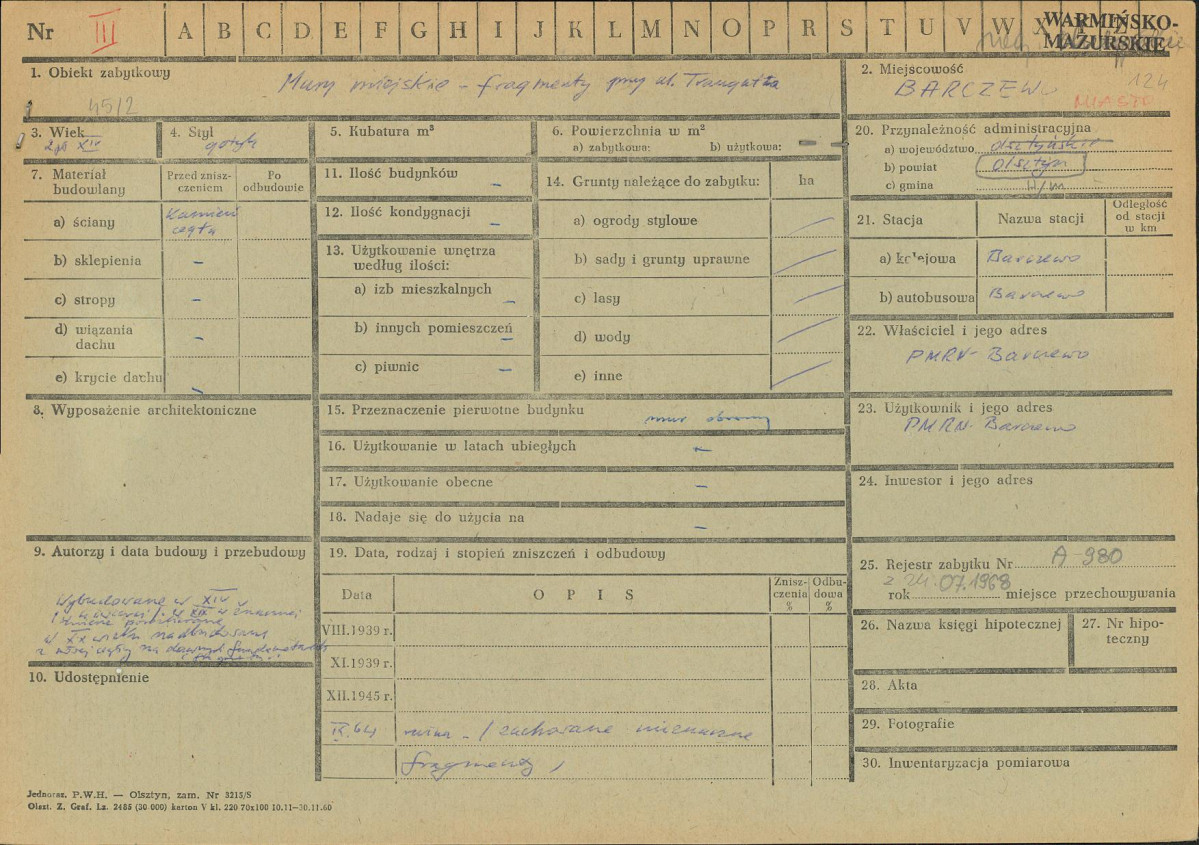 Nr III A B C D E F G H I J K L M N O P R S T U V W X Y Z
WARMIŃSKO-
MAZURSKIE
1. Obiekt zabytkowy
Mury miejskie - fragmenty przy ul. Traugutta
45/2
2. Miejscowość
BARCZEWO
124
MIASTO
3. Wiek
XIV
4. Styl
gotyk
5. Kubatura m³
6. Powierzchnia w m²
a) zabytkowa: b) użytkowa: — —
7. Materiał
budowlany
Przed znisz-
czeniem
Po
odbudowie
a) ściany
kamień
cegła
b) sklepienia –
c) stropy –
d) wiązania
dachu –
e) krycie dachu –
11. Ilość budynków –
12. Ilość kondygnacji –
13. Użytkowanie wnętrza
według ilości:
a) izb mieszkalnych –
b) innych pomieszczeń –
c) piwnic –
14. Grunty należące do zabytku: ha
a) ogrody stylowe
b) sady i grunty uprawne
c) lasy
d) wody
e) inne
20. Przynależność administracyjna
a) województwo olsztyńskie
b) powiat olsztyn
c) gmina U/m
21. Stacja
Nazwa stacji
Odległość
od stacji
w km
a) kolejowa Barczewo
b) autobusowa Barczewo
22. Właściciel i jego adres
PMRN - Barczewo
8. Wyposażenie architektoniczne
15. Przeznaczenie pierwotne budynku
mur obronny
16. Użytkowanie w latach ubiegłych –
17. Użytkowanie obecne –
18. Nadaje się do użycia na –
23. Użytkownik i jego adres
PMRN - Barczewo
24. Inwestor i jego adres
9. Autorzy i data budowy i przebudowy
Wybudowane w XIV w
w XIX w znacznej
w XX wieku nadbudowane
z nowej cegły na dawnych fundamentach
10. Udostępnienie
19. Data, rodzaj i stopień zniszczeń i odbudowy
Data
OPIS
Znisz-
czenia
%
Odbu-
dowa
%
VIII.1939 r.
XI.1939 r.
XII.1945 r.
IX.64 ruina - / zachowane nieznaczne
fragmenty /
25. Rejestr zabytku Nr A-980
z 24.07.1968
rok miejsce przechowywania
26. Nazwa księgi hipotecznej
27. Nr hipo-
teczny
28. Akta
29. Fotografie
30. Inwentaryzacja pomiarowa
Jednoraz. P.W.H. — Olsztyn, zam. Nr 3215/S
Olszt. Z. Graf. Lz. 2485 (30 000) karton V kl. 220 70x100 10.11—30.11.60